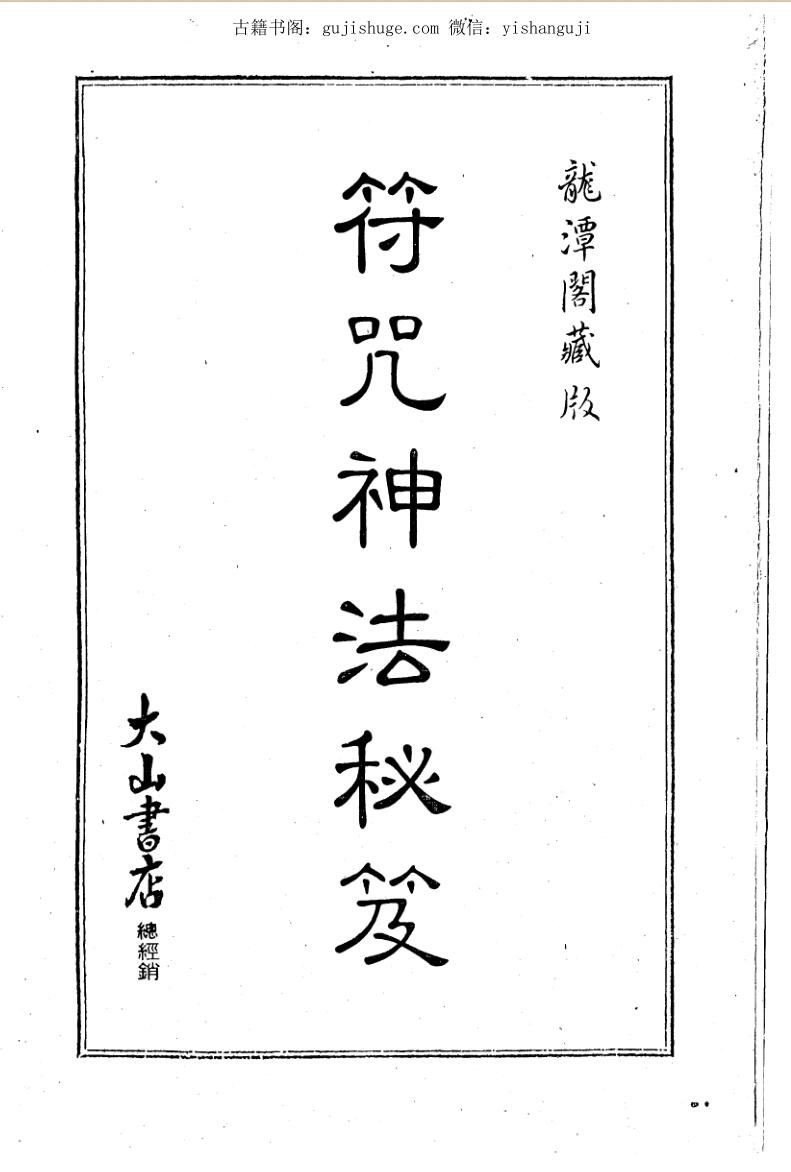 古籍书阁：gujishuge.com 微信：yishanguji
龍潭閣藏版
符咒神法秘笈
大山書店
總經銷